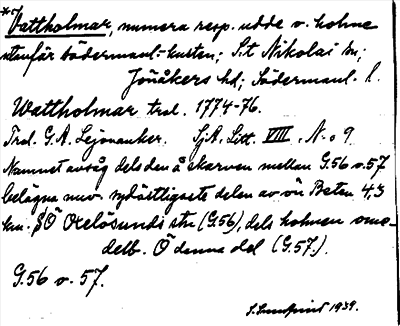 *Vattholmar, numera resp. udde o. holme
utanför södermanl.-kusten; S:t Nikolai sn;
Jönåkers hd; Södermanl. l.
Wattholmar trol. 1774-76.
Trol. G. A. Lejonanker. SjA. Litt. VIII. N:o 9
Namnet avsåg dels den å skarven mellan G.56 o. 57
belägna nuv. sydöstligaste delen av ön Beten 4,3
km. SÖ Oxelösunds stn (G.56), dels holmen ome-
delb. Ö denna del (G.57).
G.56 o. 57.
1939.